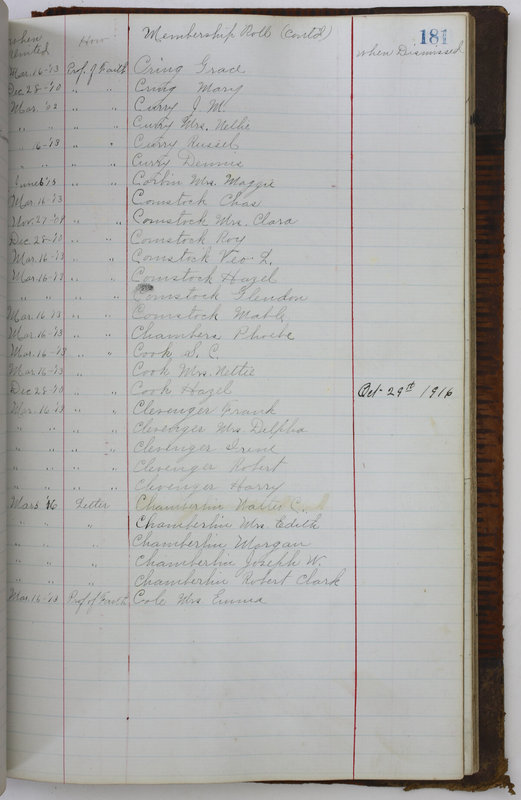 181
Membership Roll (cont'd)
when United How when Dismissed
Mar. 16-'13 Prof. of Faith Cring Grace
Dec 28-'10 " " Cring Mary
Mar. '02 " " Curry J. M.
" " " " Curry Mrs. Nellie
" 16-'13 " " Curry Russel
" " " " Curry Dennis
June 6 '15 " " Corbin Mrs. Maggie
Mar. 16 '13 Comstock Chas
Nov. 27-'09 " " Comstock Mrs. Clara
Dec. 28-'10 " " Comstock Roy
Mar. 16-'13 " " Comstock Veo L.
Mar. 16-'13 " " Comstock Hazel
" " " " Comstock Glendon
Mar. 16 '13 " " Comstock Mable
Mar. 16-'13 " " Chambers Phoebe
Mar. 16-'13 " " Cook, S. C.
Mar. 16-'13 " Cook Mrs. Nettie
Dec 28-'10 " " Cook Hazel Oct- 29th 1916
Mar. 16-'13 " " Clevenger Frank
" " " " Clevenger Mrs. Delpha
" " " " Clevenger Irene
" " " " Clevenger Robert
" " " " Clevenger Harry
Mar 5 '16 Letter Chamberlin C.
" " " Chamberlin Mrs. Edith
" " " Chamberlin Morgan
" " " Chamberlin Joseph W.
" " " Chamberlin Robert Clark
Mar. 16-'13 Prof. of Faith Cole Mrs. Emma